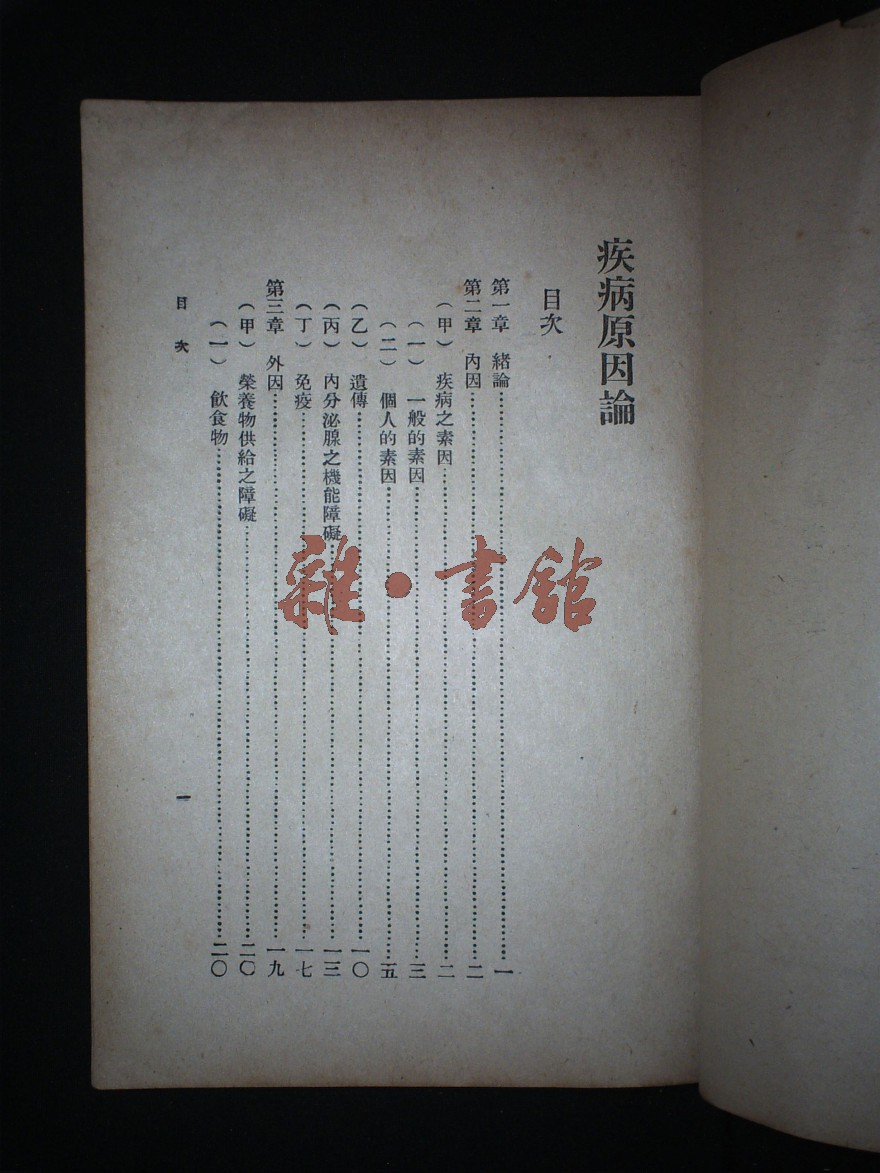 疾病原因論
目次
第一章 緒論……一
第二章 內因……二
（甲） 疾病之素因……二
（一） 一般的素因……三
（二） 個人的素因……五
（乙） 遺傳……一〇
（丙） 內分泌腺之機能障礙……一三
（丁） 免疫……一七
第三章 外因……一九
（甲） 榮養物供給之障礙……二〇
（一） 飲食物……二〇
目次
一
雜·書館